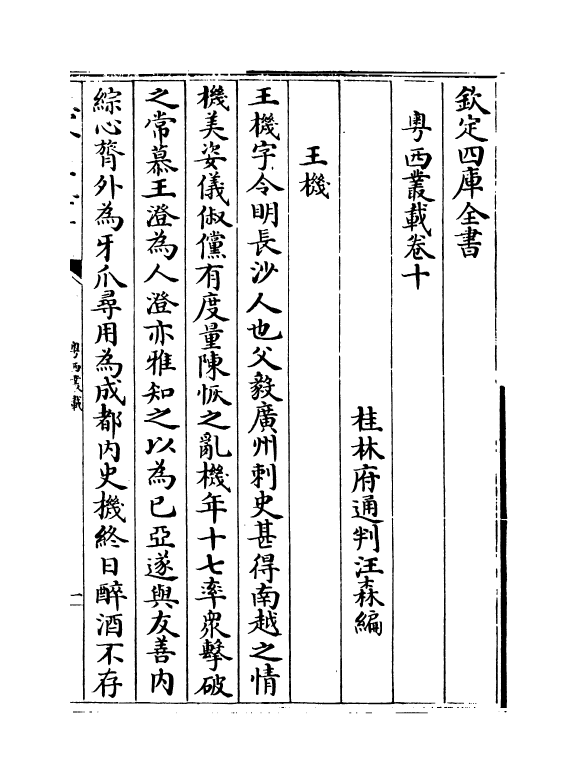 欽定四庫全書
粵西叢載卷十
桂林府通判汪森編
王機
王機字令明長沙人也父毅廣州刺史甚得南越之情
機美姿儀俶儻有度量陳恢之亂機年十七率衆擊破
之常慕王澄為人澄亦雅知之以為已亞遂與友善内
綜心膂外為牙爪尋用為成都内史機終日醉酒不存
粵西叢載
一